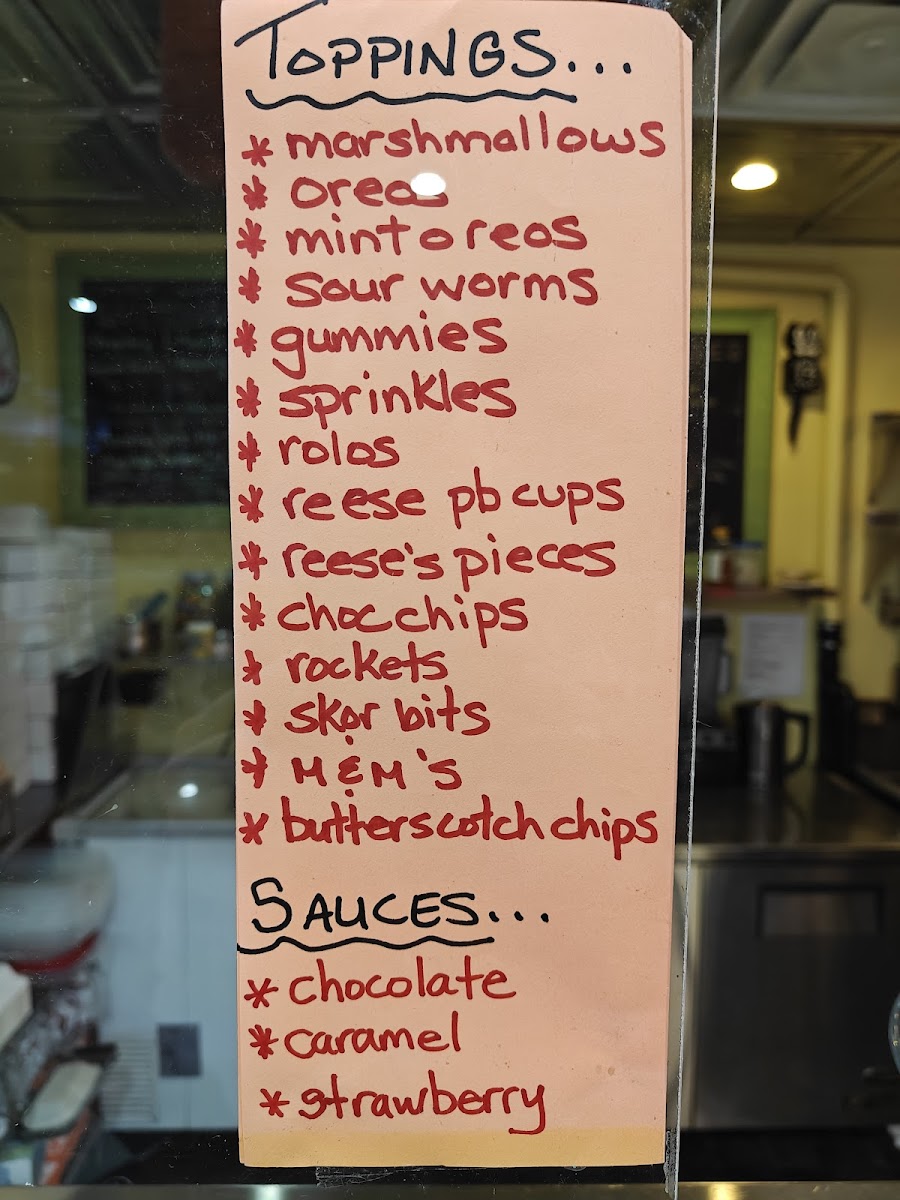 TOPPINGS...
* marshmallows
* oreos
* mint oreos
* sour worms
* gummies
* sprinkles
* rolos
* reese pb cups
* reese's pieces
* choc chips
* rockets
* skor bits
* M&M's
* butterscotch chips
SAUCES...
* chocolate
* caramel
* strawberry